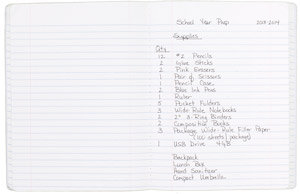 School Year Prep 2013-2014
Supplies
Qty
12 #2 Pencils
2 Glue Sticks
2 Pink Erasers
1 Pair of Scissors
1 Pencil Case
2 Blue Ink Pens
1 Ruler
5 Pocket Folders
3 Wide Rule Notebooks
2 2" 3-Ring Binders
2 Composition Books
3 Package Wide-Rule Filler Paper
(100 sheets/package)
1 USB Drive 4GB
Backpack
Lunch Box
Hand Sanitizer
Compact Umbrella